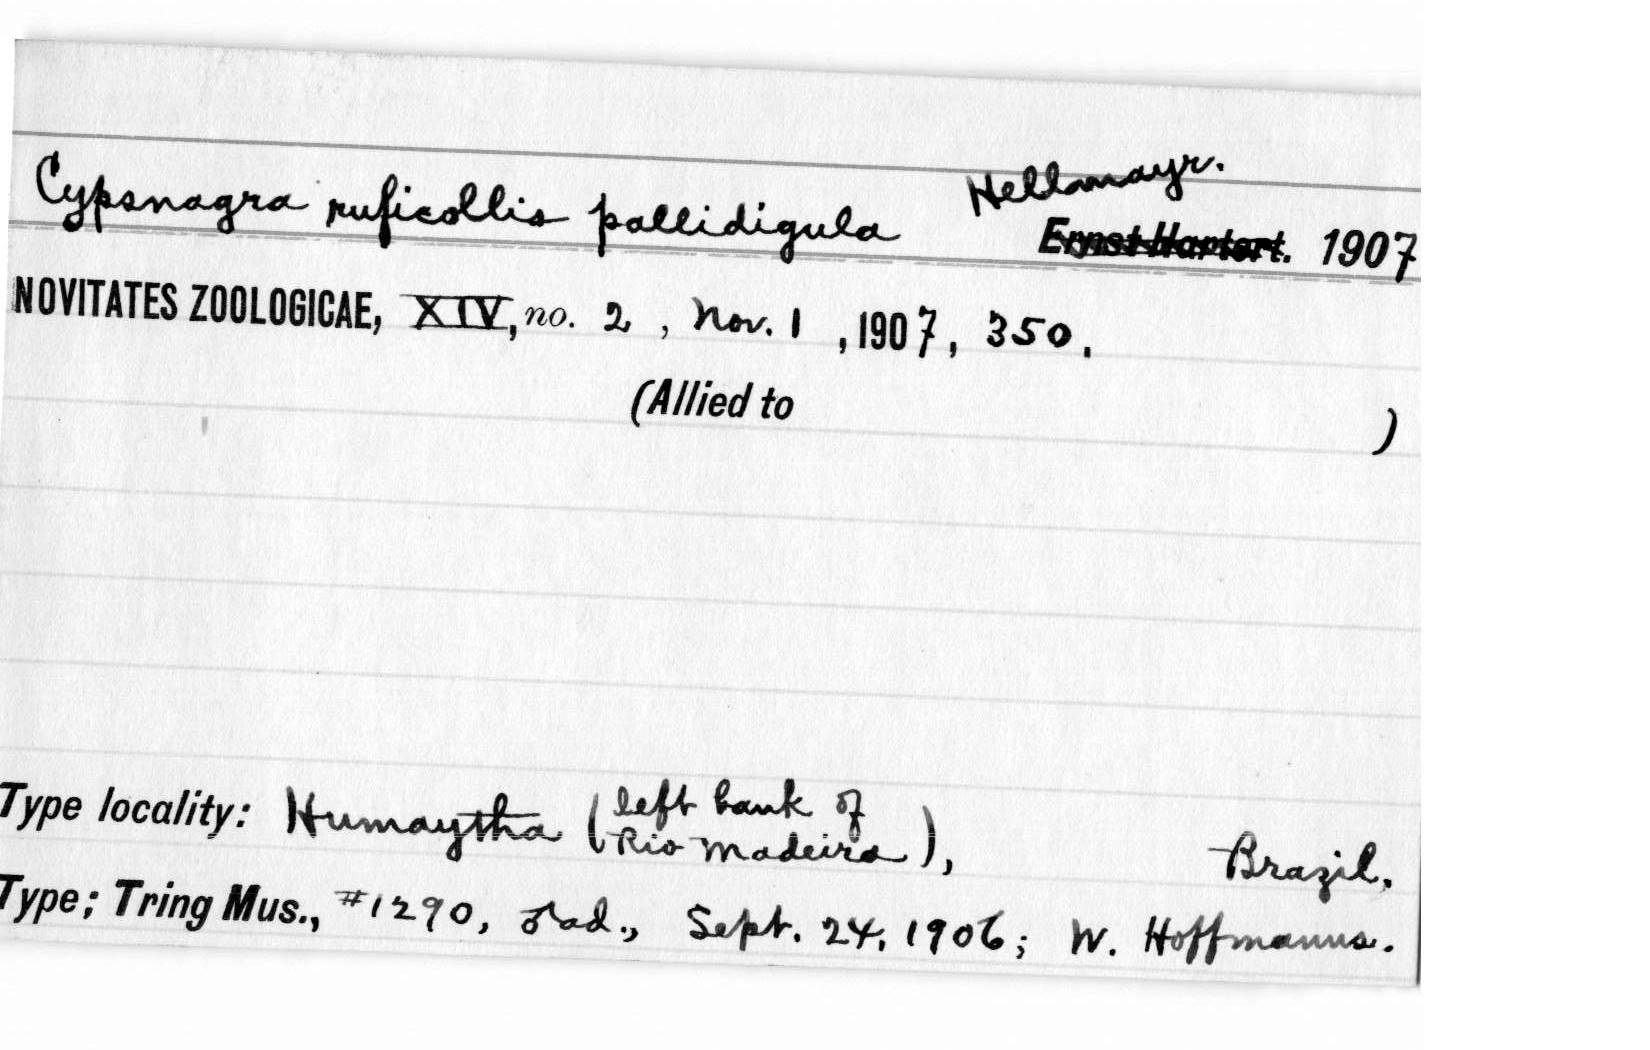 Cypsnagra ruficollis pallidigula Hellmayr.
Ernst Hartert. 1907
NOVITATES ZOOLOGICAE, XIV, no. 2, Nov. 1, 1907, 350.
(Allied to )
Type locality: Humaytha (left bank of
Rio Madeira), Brazil.
Type; Tring Mus., #1290, ♂ad., Sept. 24, 1906; W. Hoffmanns.